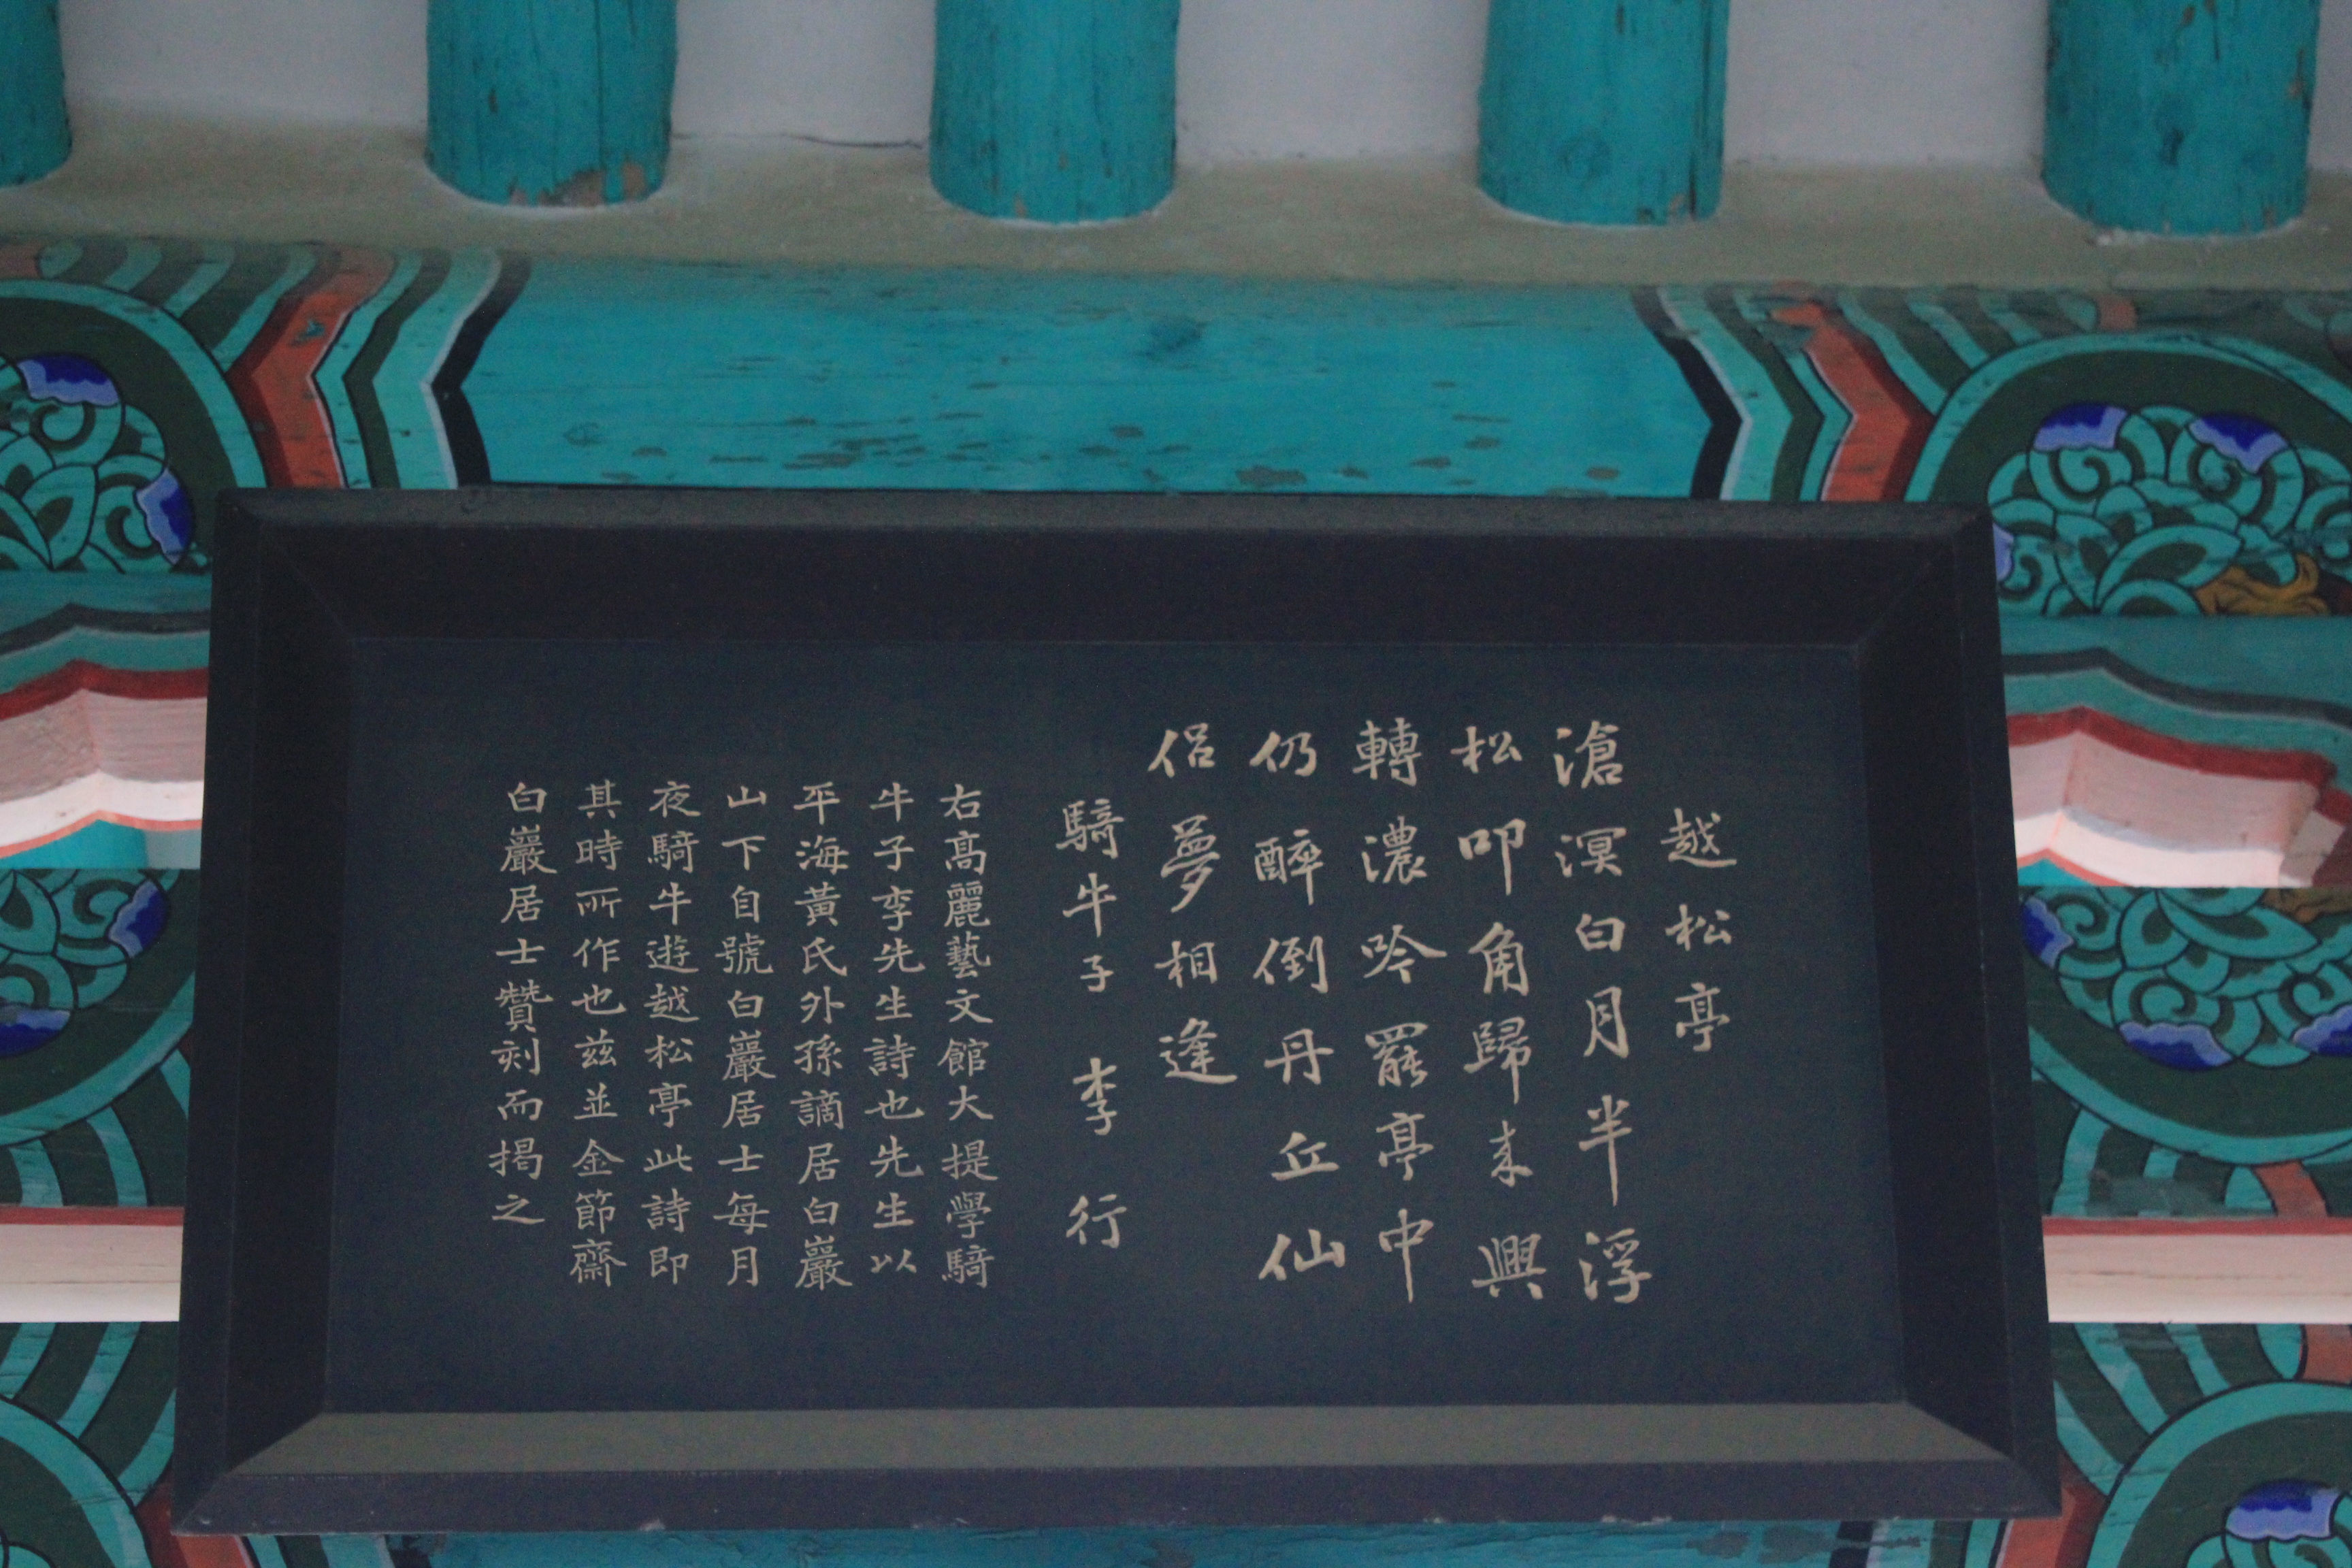 越松亭
滄溟白月半浮
松叩角歸来興
轉濃吟罷亭中
仍醉倒丹丘仙
侶夢相逢
騎牛子 李行
右高麗藝文館大提學騎
牛子李先生詩也先生以
平海黃氏外孫謫居白巖
山下自號白巖居士每月
夜騎牛遊越松亭此詩即
其時所作也茲並金節齋
白巖居士贊刻而揭之